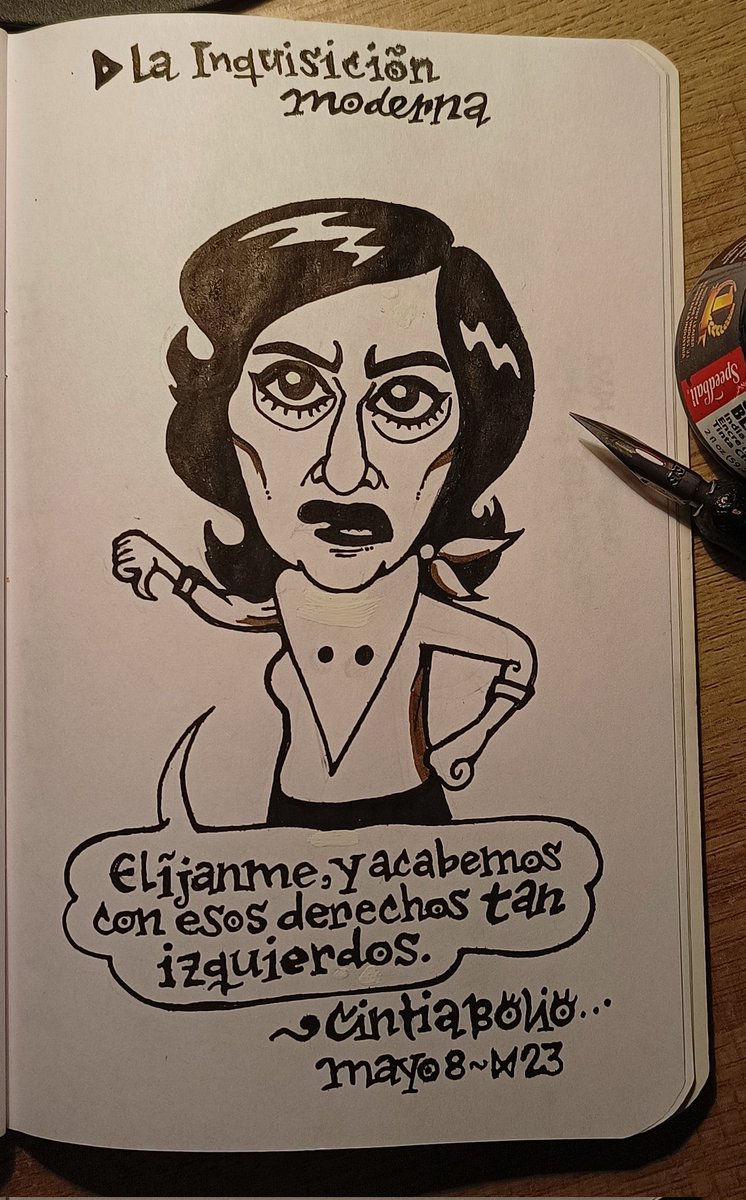 La Inquisición
moderna
Elíjanme, y acabemos
con esos derechos tan
izquierdos.
Cintiabolio...
mayo 8~23
Speedball
Encre
Tinta